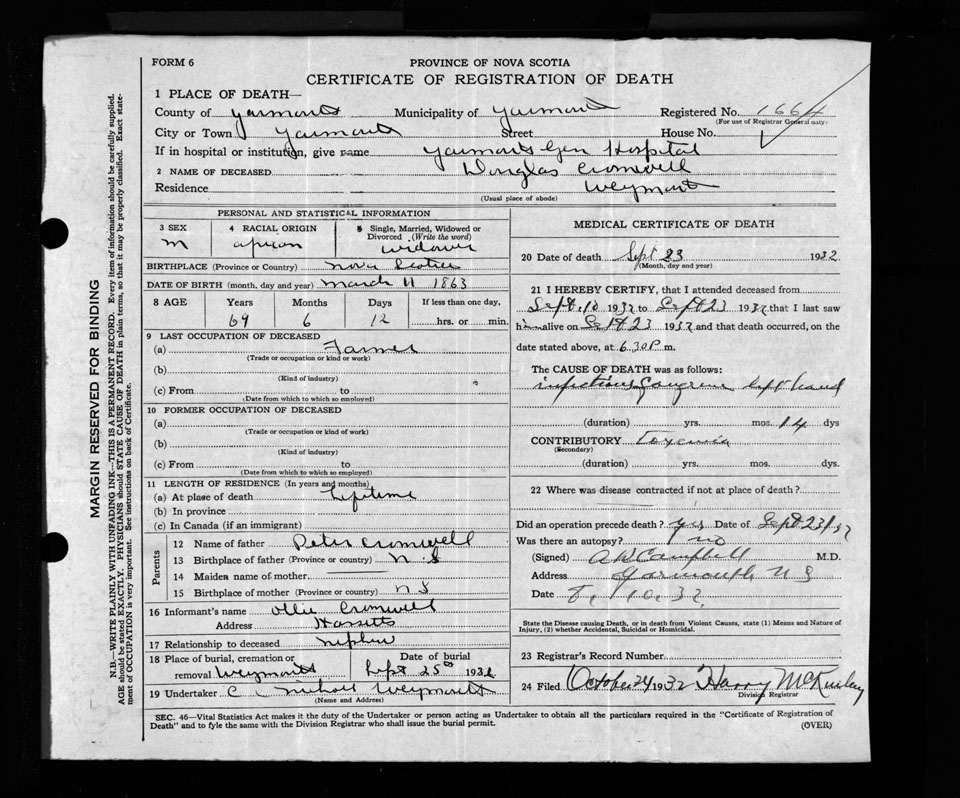 FORM 6
PROVINCE OF NOVA SCOTIA
CERTIFICATE OF REGISTRATION OF DEATH
MARGIN RESERVED FOR BINDING
N.B.—WRITE PLAINLY WITH UNFADING INK—THIS IS A PERMANENT RECORD. Every item of information should be carefully supplied.
AGE should be stated EXACTLY. PHYSICIANS should STATE CAUSE OF DEATH in plain terms, so that it may be properly classified. Exact state-
ment of OCCUPATION is very important. See instructions on back of Certificate.
1 PLACE OF DEATH—
County of Yarmouth Municipality of Yarmouth Registered No. 1664
(For use of Registrar General only)
City or Town Yarmouth Street House No.
If in hospital or institution, give name Yarmouth Gen Hospital
2 NAME OF DECEASED Douglas Cromwell
Residence Weymouth
(Usual place of abode)
PERSONAL AND STATISTICAL INFORMATION
3 SEX 4 RACIAL ORIGIN 5 Single, Married, Widowed or Divorced (Write the word)
M African widower
BIRTHPLACE (Province or Country) Nova Scotia
DATE OF BIRTH (month, day and year) March 11 1863
8 AGE Years Months Days If less than one day,
69 6 12 hrs. or min.
9 LAST OCCUPATION OF DECEASED
(a) Farmer
(Trade or occupation or kind or work)
(b)
(Kind of industry)
(c) From to
(Date from which to which so employed)
10 FORMER OCCUPATION OF DECEASED
(a)
(Trade or occupation or kind of work)
(b)
(Kind of industry)
(c) From to
(Date from which to which so employed)
11 LENGTH OF RESIDENCE (In years and months)
(a) At place of death Lifetime
(b) In province
(c) In Canada (if an immigrant)
Parents
12 Name of father Peter Cromwell
13 Birthplace of father (Province or country) N S
14 Maiden name of mother
15 Birthplace of mother (Province or country) N S
16 Informant's name Ollie Cromwell
Address Hassetts
17 Relationship to deceased nephew
18 Place of burial, cremation or removal Weymouth
Date of burial Sept 25th 1932
19 Undertaker C Weymouth
(Name and Address)
MEDICAL CERTIFICATE OF DEATH
20 Date of death Sept 23 1932
(Month, day and year)
21 I HEREBY CERTIFY, that I attended deceased from
Sept. 10 1932 to Sept 23 1932 that I last saw
him alive on Sept 23 1932 and that death occurred, on the
date stated above, at 6.30 P. m.
The CAUSE OF DEATH was as follows:
infectious Gangrene left hand
(duration) yrs. mos. 14 dys
CONTRIBUTORY Toxemia
(Secondary)
(duration) yrs. mos. dys.
22 Where was disease contracted if not at place of death?
Did an operation precede death? yes Date of Sept 23/32
Was there an autopsy? no
(Signed) A W Campbell M.D.
Address Yarmouth, N S
Date 10. 32
State the Disease causing Death, or in death from Violent Causes, state (1) Means and Nature of
Injury, (2) whether Accidental, Suicidal or Homicidal.
23 Registrar's Record Number
24 Filed October 24 1932 Harry McKinlay
Division Registrar
SEC. 46—Vital Statistics Act makes it the duty of the Undertaker or person acting as Undertaker to obtain all the particulars required in the "Certificate of Registration of
Death" and to fyle the same with the Division Registrar who shall issue the burial permit.
(OVER)